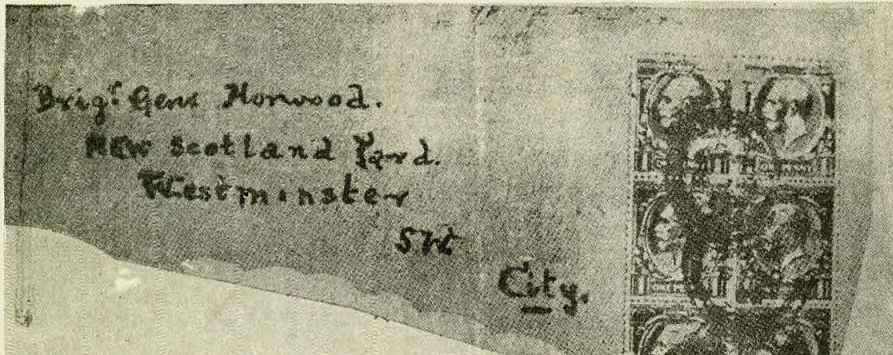 Brigr Genl Horwood.
New Scotland Yard.
Westminster
SW
City.